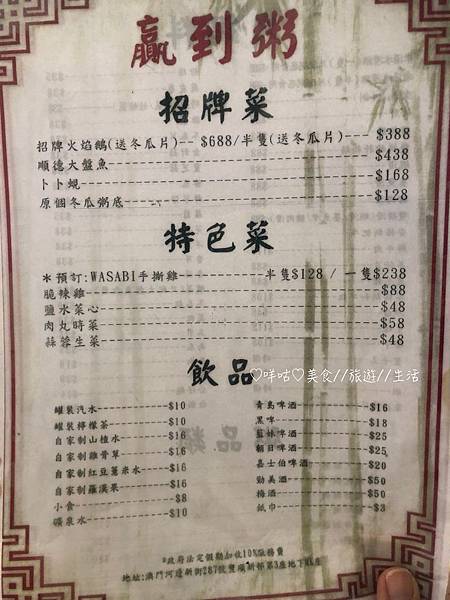 贏到粥
招牌菜
招牌火焰鵝(送冬瓜片)-- $688/半隻(送冬瓜片)--- $388
順德大盤魚 $438
卜卜蜆 $168
原個冬瓜粥底 $128
特色菜
*預訂:WASABI手撕雞 半隻$128 / 一隻$238
脆辣雞 $88
鹽水菜心 $48
肉丸時菜 $58
蒜蓉生菜 $48
飲品
♡咩咕♡美食//旅遊//生活
罐裝汽水 $10
罐裝檸檬茶 $10
自家制山楂水 $16
自家制雞骨草 $16
自家制紅豆薏米水 $16
自家制羅漢果 $16
小食 $8
礦泉水 $10
青島啤酒 $16
黑啤 $18
藍妹啤酒 $25
朝日啤酒 $25
嘉士伯啤酒 $20
勁美酒 $50
梅酒 $50
紙巾 $3
*政府法定假期加收10%服務費
地址:澳門河邊新街287號豐順新邨第3座地下